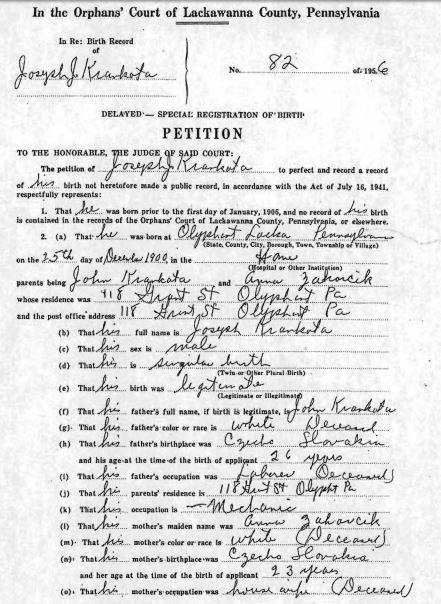 In the Orphans' Court of Lackawanna County, Pennsylvania
In Re: Birth Record
of
Joseph J Krankota
No. 82 of: 1956
DELAYED — SPECIAL REGISTRATION OF BIRTH
PETITION
TO THE HONORABLE, THE JUDGE OF SAID COURT:
The petition of Joseph J Krankota to perfect and record a record
of his birth not heretofore made a public record, in accordance with the Act of July 16, 1941,
respectfully represents:
1. That he was born prior to the first day of January, 1906, and no record of his birth
is contained in the records of the Orphans' Court of Lackawanna County, Pennsylvania, or elsewhere.
2. (a) That he was born at Olyphant Lacka Pennsylvania
(State, County, City, Borough, Town, Township or Village)
on the 25th day of December 1900, in the Home
(Hospital or Other Institution)
parents being John Krankota and Anna Zahovcik
whose residence was 118 Grant St Olyphant Pa
and the post office address 118 Grant St Olyphant Pa
(b) That his full name is Joseph Krankota
(c) That his sex is male
(d) That his is singular birth
(Twin or Other Plural Birth)
(e) That his birth was legitimate
(Legitimate or Illegitimate)
(f) That his father's full name, if birth is legitimate, is John Krankota
(g) That his father's color or race is white Deceased
(h) That his father's birthplace was Czecho Slovakia
and his age at the time of the birth of applicant 26 years
(i) That his father's occupation was Laborer (Deceased)
(j) That his parents' residence is 118 Grant St Olyphant Pa
(k) That his occupation is Mechanic
(l) That his mother's maiden name was Anna Zahovcik
(m) That his mother's color or race is white (Deceased)
(n) That his mother's birthplace was Czecho Slovakia
and her age at the time of the birth of applicant 23 years
(o) That his mother's occupation was house wife (Deceased)